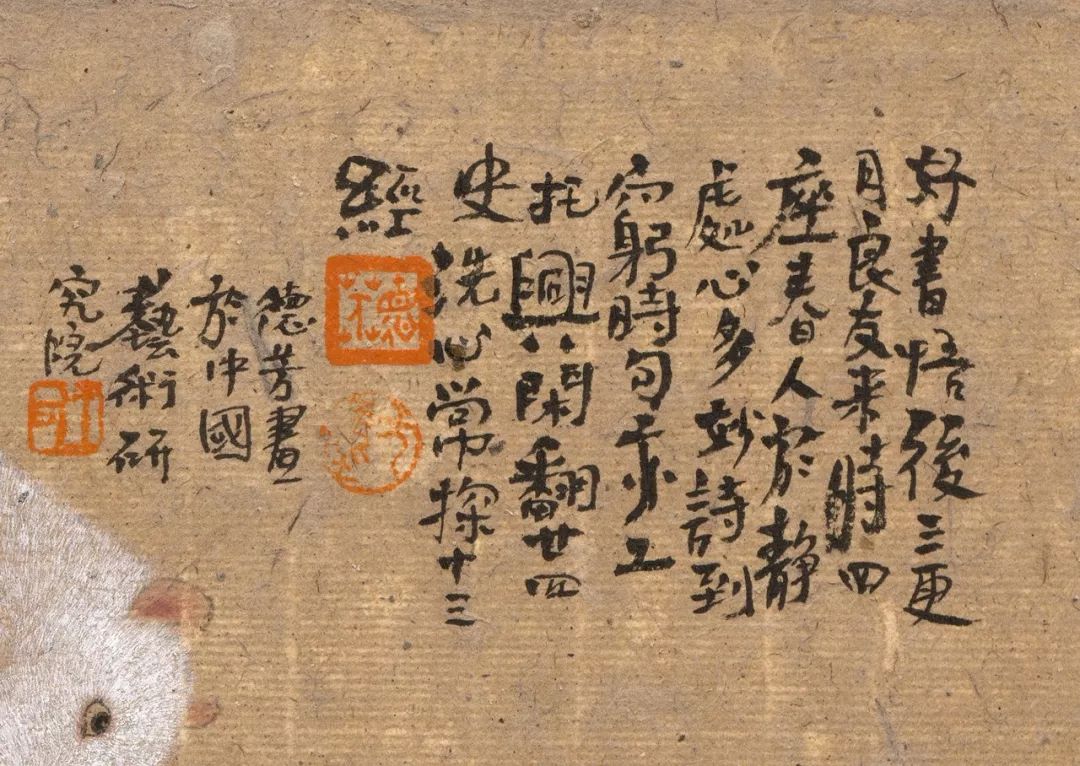 好書悟後三更
月良友来時四
座春人於静
處心多妙詩到
窮時句亦工
托興閑翻廿四
史洗心常探十三
經
德芳畫
於中國
藝術研
究院